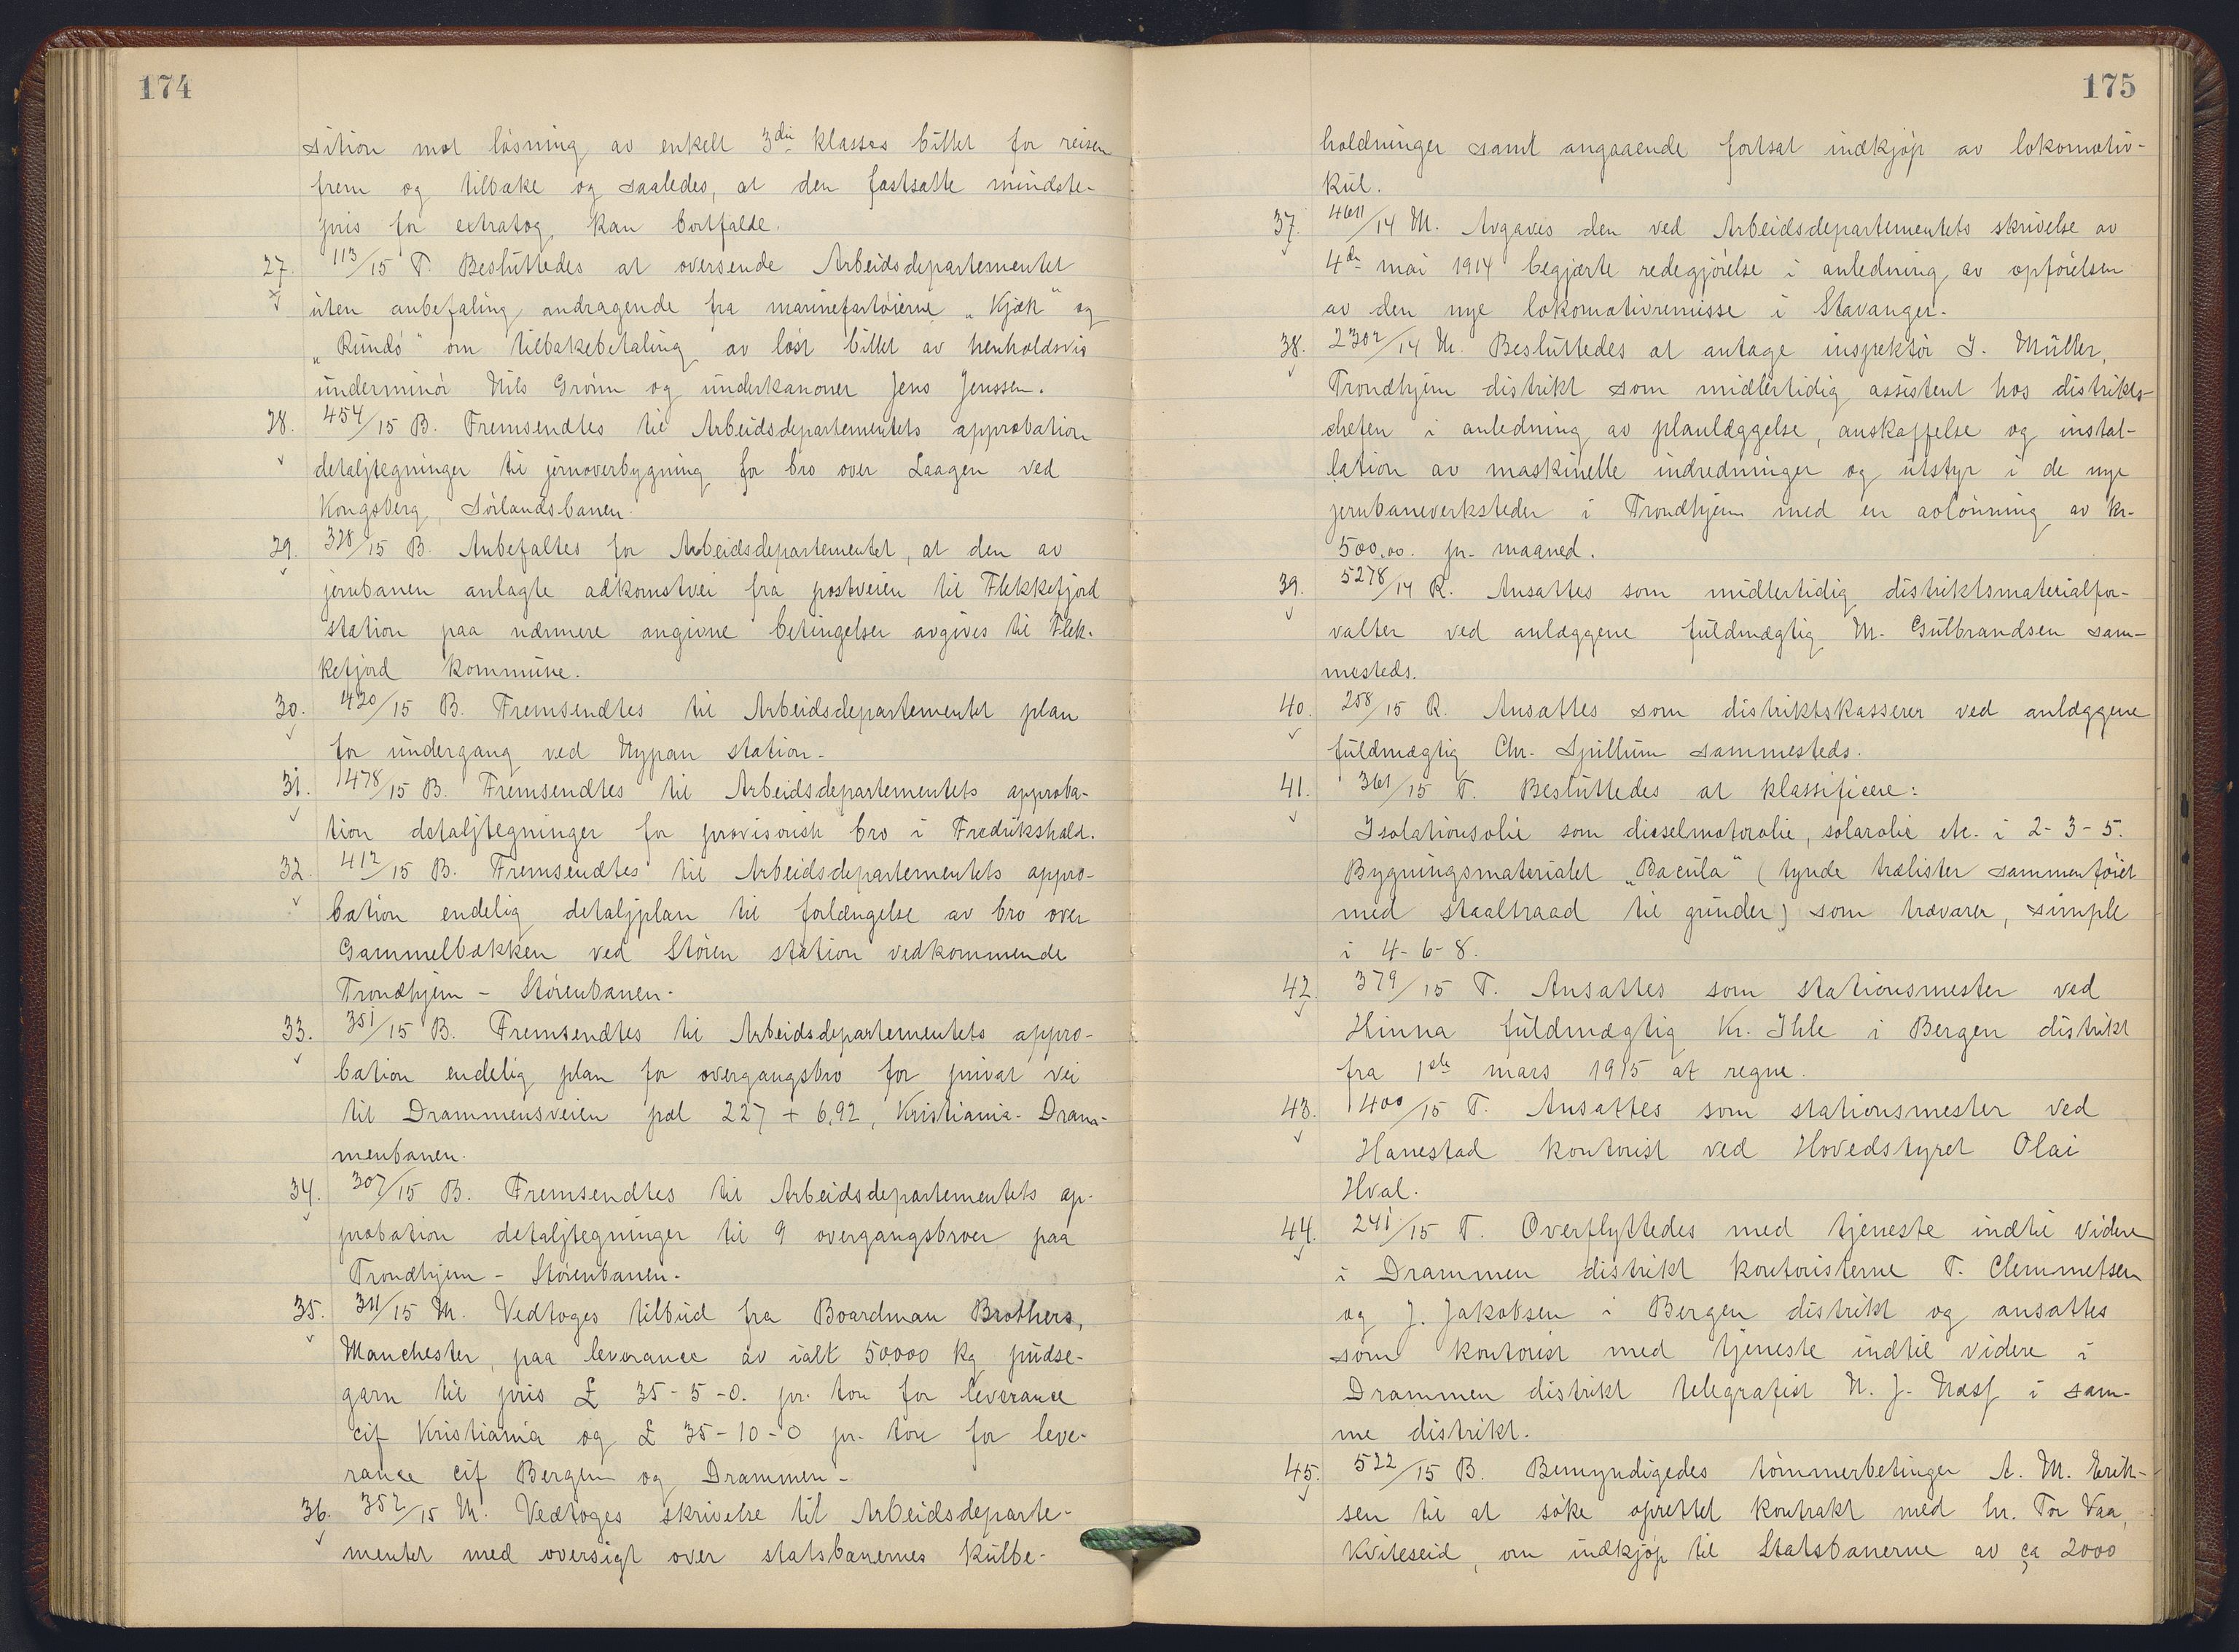 174
sition mot løsning av enkelt 3die klasses billet for reisen
frem og tilbake og saaledes, at den fastsatte mindste-
pris for extratog kan bortfalde.
27. 113/15 T. Besluttedes at oversende Arbeidsdepartementet
uten anbefaling andragende fra marinefartøierne „Kjæk" og
„Rundø" om tilbakebetaling av løst billet av henholdsvis
underminør Nils Grønn og underkanoner Jens Jenssen.
28. 454/15 B. Fremsendtes til Arbeidsdepartementets approbation
detaljtegninger til jernoverbygning for bro over Laagen ved
Kongsberg, Sørlandsbanen.
29. 328/15 B. Anbefaltes for Arbeidsdepartementet, at den av
jernbanen anlagte adkomstvei fra postveien til Flekkefjord
station paa nærmere angivne betingelser avgives til Flek-
kefjord kommune.
30. 420/15 B. Fremsendtes til Arbeidsdepartementet plan
for undergang ved Nypan station.
31. 478/15 B. Fremsendtes til Arbeidsdepartementets approba-
tion detaljtegninger for provisorisk bro i Fredrikshald.
32. 412/15 B. Fremsendtes til Arbeidsdepartementets appro-
bation endelig detaljplan til forlængelse av bro over
Gammelbækken ved Støren station vedkommende
Trondhjem - Størenbanen.
33. 351/15 B. Fremsendtes til Arbeidsdepartementets appro-
bation endelig plan for overgangsbro for privat vei
til Drammensveien pæl 227 + 6,92, Kristiania - Dram-
menbanen.
34. 307/15 B. Fremsendtes til Arbeidsdepartementets ap-
probation detaljtegninger til 9 overgangsbroer paa
Trondhjem - Størenbanen.
35. 311/15 M. Vedtoges tilbud fra Boardman Brothers,
Manchester, paa leverance av ialt 50.000 kg pudse-
garn til pris £ 35-5-0. pr. ton for leverance
cif Kristiania og £ 35-10-0 pr. ton for leve-
rance cif Bergen og Drammen.
36. 352/15 M. Vedtoges skrivelse til Arbeidsdeparte-
mentet med oversigt over statsbanernes kulbe-
175
holdninger samt angaaende fortsat indkjøp av lokomotiv-
kul.
37. 4611/14 M. Avgaves den ved Arbeidsdepartementets skrivelse av
4de mai 1914 begjærte redegjørelse i anledning av opførelsen
av den nye lokomotivremisse i Stavanger.
38. 2302/14 M. Besluttedes at antage inspektør I. Müller,
Trondhjem distrikt som midlertidig assistent hos distrikts-
chefen i anledning av planlæggelse, anskaffelse og instal-
lation av maskinelle indredninger og utstyr i de nye
jernbaneverksteder i Trondhjem med en avlønning av kr.
500.00. pr. maaned.
39. 5278/14 R. Ansattes som midlertidig distriktsmaterialfor-
valter ved anlæggene fuldmægtig M. Gulbrandsen sam-
mesteds.
40. 258/15 R. Ansattes som distriktskasserer ved anlæggene
fuldmægtig Chr. Spillum sammesteds.
41. 361/15 T. Besluttedes at klassificere:
Isolationsolie som dieselmotorolie, solarolie etc. i 2-3-5.
Bygningsmaterialet „Bacula" (tynde trælister sammenføiet
med staaltraad til grunder) som trævarer, simple
i 4-6-8.
42. 379/15 T. Ansattes som stationsmester ved
Hinna fuldmægtig Kr. Ihle i Bergen distrikt
fra 1ste mars 1915 at regne.
43. 400/15 T. Ansattes som stationsmester ved
Hanestad kontorist ved Hovedstyret Olai
Hval.
44. 241/15 T. Overflyttedes med tjeneste indtil videre
i Drammen distrikt kontoristerne T. Clemmetsen
og J. Jakobsen i Bergen distrikt og ansattes
som kontorist med tjeneste indtil videre i
Drammen distrikt telegrafist N. J. Næss i sam-
me distrikt.
45. 522/15 B. Bemyndigedes tømmerbetinger A. M. Erik-
sen til at søke oprettet kontrakt med hr. Tor Vaa,
Kviteseid, om indkjøp til Statsbanerne av ca 2000